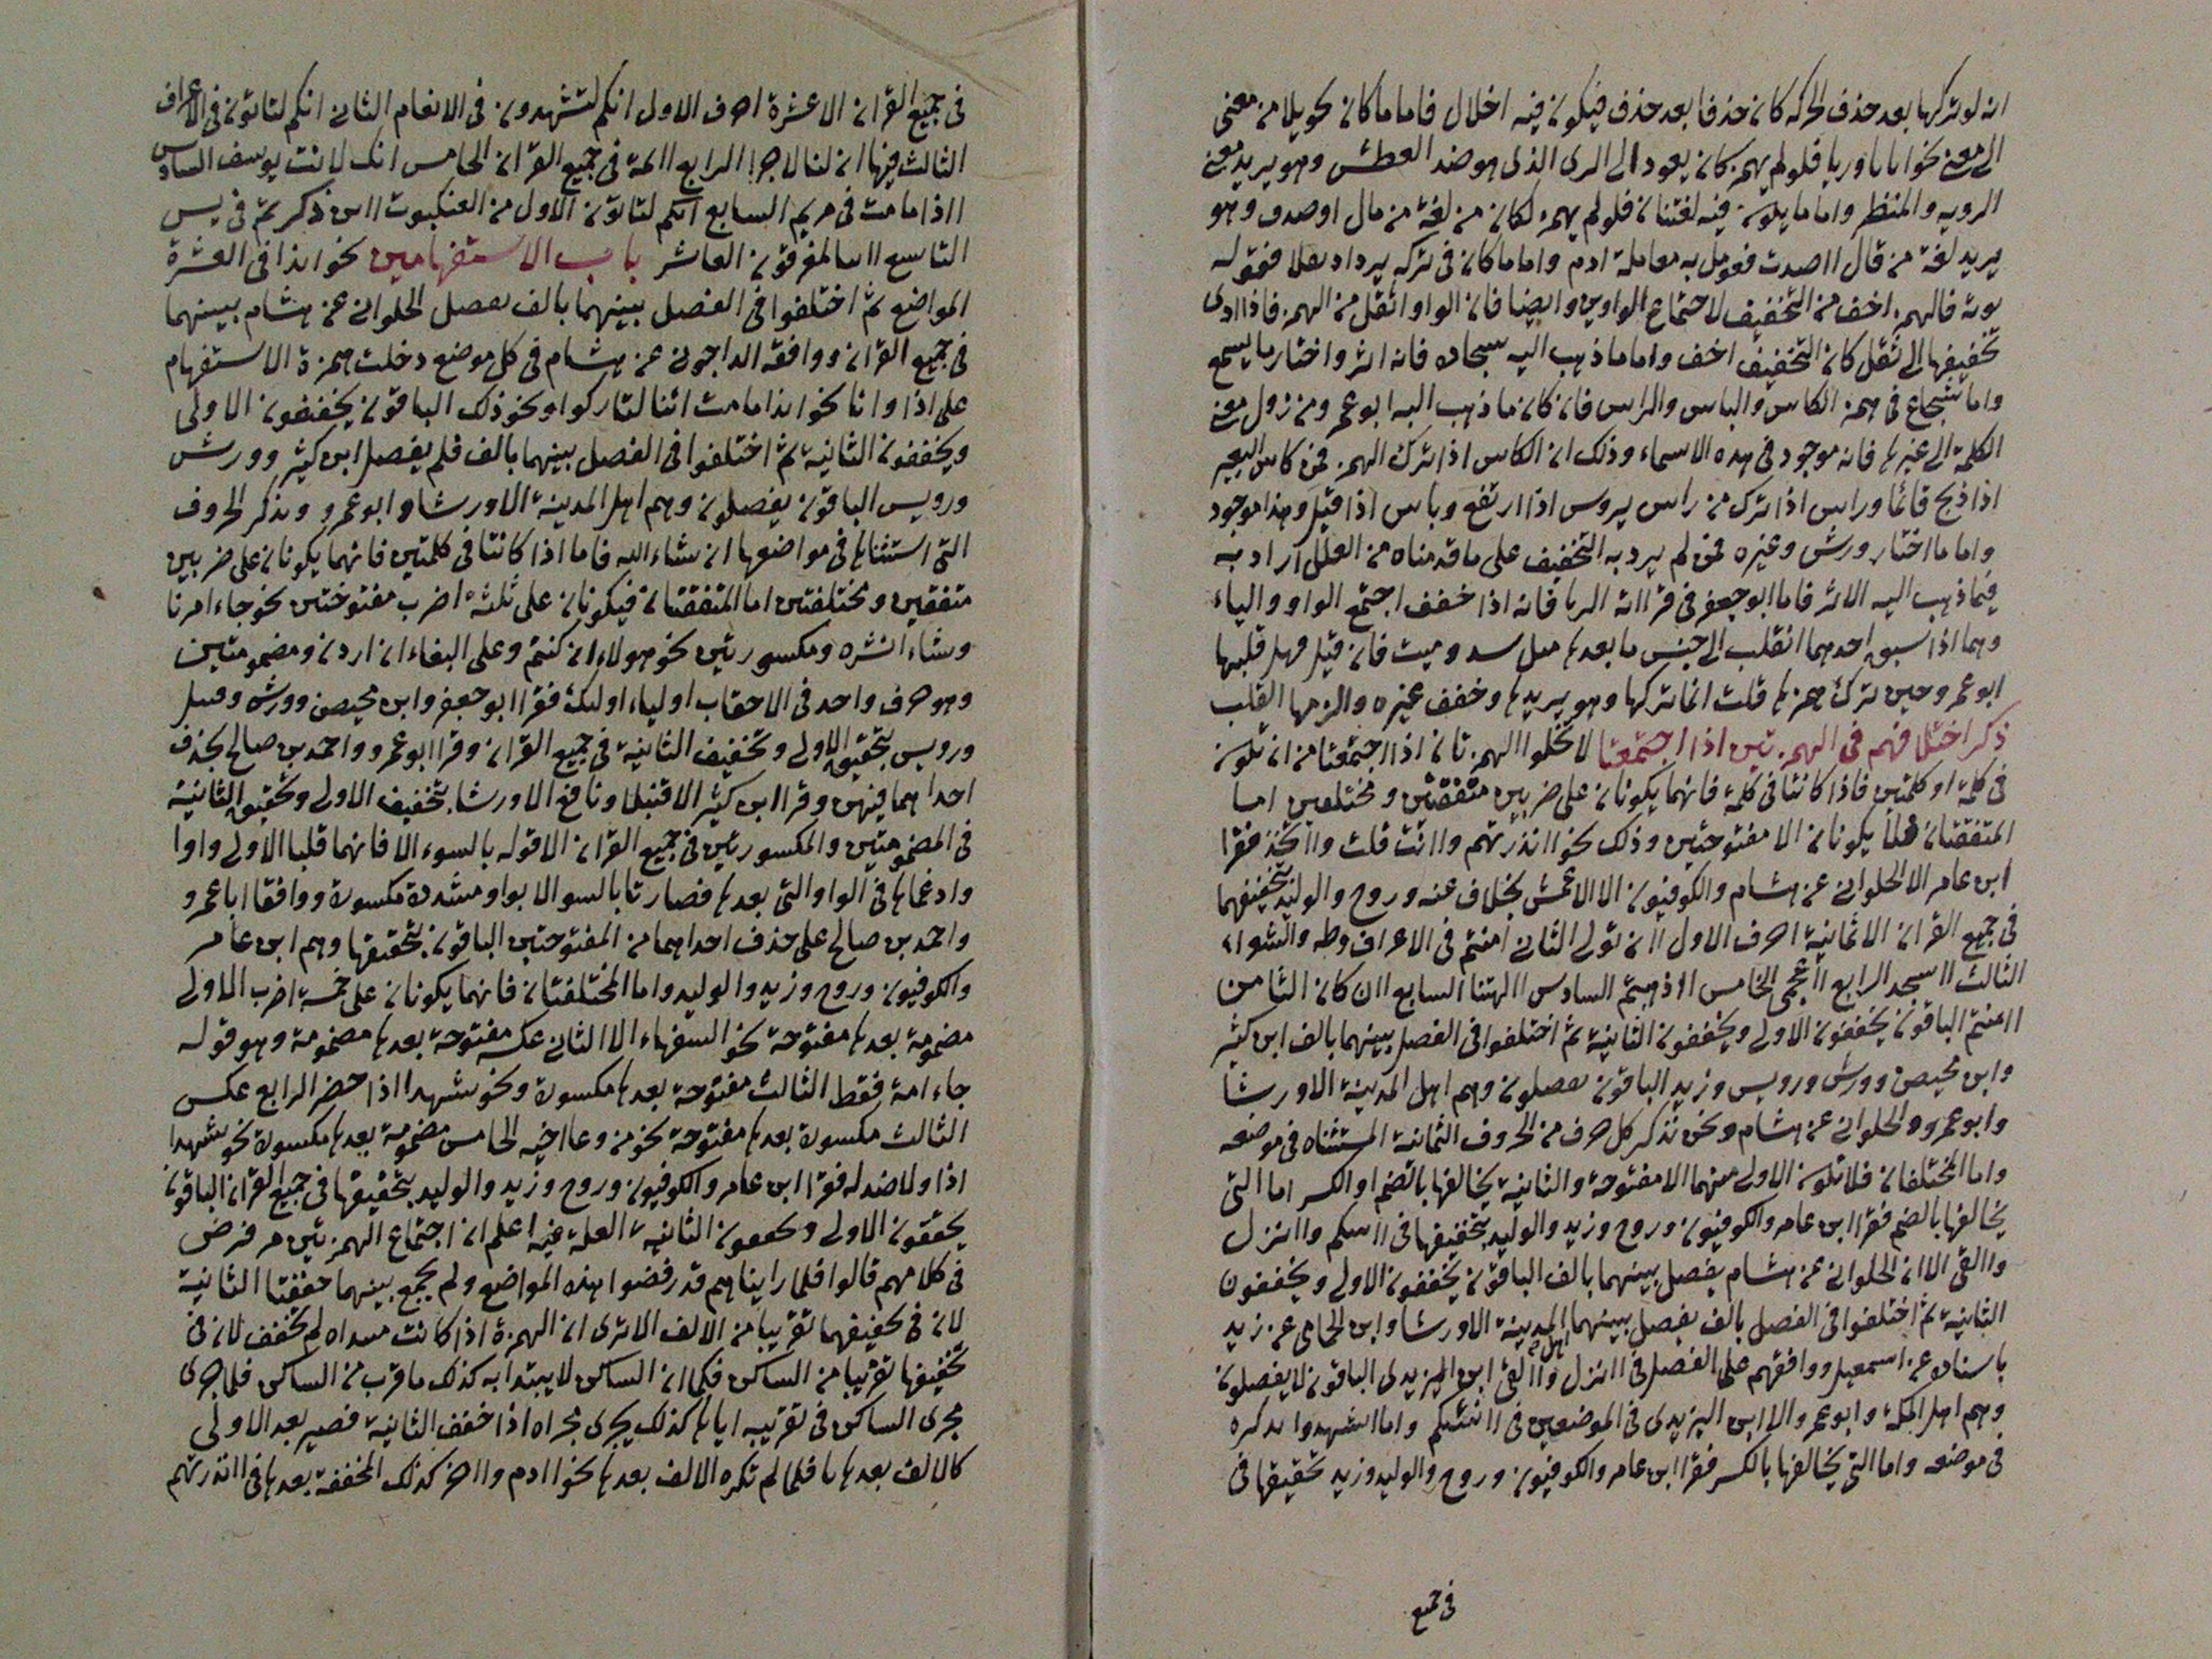 انه لو تركها بعد حذف الحركه كان حذفا بعد حذف فيكون فيه اخلال فاما ما كان تحويلا من معنى
الى معنى نحو اياباوريا فلو لم يهمز كان يعود الى الرى الذى هو ضد العطش وهو يريد معنى
الرويه والمنظر واما ما يكون فيه لغتان فلو لم يهمز لكان من لغة من مال اوصدف وهو
يريد لغة من قال ااصدت فعومل به معاملة ادم واما ما كان فى تركه يرداد ثقلا فقوله
فالهمز اخف من التخفيف لاجتماع الواوين وايضا فان الواو اثقل من الهمز فاذا ادى
تخفيفها الى ثقل كان التخفيف اخف واما ما ذهب اليه فانه اثر واختار ما يسمع
واما شجاع فى همز الكاس والباس والراس فان كان ما ذهب اليه ابو عمرو من زول معنى
الكلمة الى غيرها فانه موجود فى هذه الاسماء وذلك ان الكاس اذا ترك الهمز فمن كاس البعير
اذا ذبح قائما وراس اذا ترك من راس يروس اذا ارتفع وباس اذا قبل وهذا موجود
واما ما اختار ورش وغيره فمن لم يرد به التخفيف على ما قدمناه من العلل اراد به
فيما ذهب اليه الاثر فاما ابو جعفر فى قرااته الريا فانه اذا خفف اجتمع الواو والياء
وهما اذا سبق احدهما انقلب الى جنس ما بعدها مثل سيد وميت فان قيل فهلا قلبها
ابو عمرو حين ترك همزها قلت انما تركها وهو يريدها وخفف غيره والزمها القلب
ذكر اختلافهم فى الهمزتين اذا اجتمعتا لا تخلوا الهمزتان اذا اجتمعتا من ان تكون
فى كلمة او كلمتين فاذا كانتا فى كلمة فانهما يكونان على ضربين متفقتين ومختلفين اما
المتفقتان فلا يكونان الا مفتوحتين وذلك نحو اانذرتهم واانت قلت وااتخذ فقرا
ابن عامر الا الحلوانى عن هشام والكوفيون الا الاعمش بخلاف عنه وروح والوليد بتخفيفهما
فى جميع القران الا ثمانية احرف الاول اان تولى الثانى امنتم فى الاعراف وطه والشعراء
الثالث ااسجد الرابع ااعجمى الخامس ااذهبتم السادس االهتنا السابع اان كان الثامن
اامنتم الباقون يخففون الاولى ويخففون الثانية ثم اختلفوا فى الفصل بينهما بالف ابن كثير
وابن محيصن وورش ورويس وزيد الباقون يفصلون وهم اهل المدينة الا ورشا
وابو عمرو والحلوانى عن هشام ونحن نذكر كل حرف من الحروف الثمانية المستثناه فى موضعه
واما المختلفان فلا تكون الاولى منهما الا مفتوحة والثانية يخالفها بالضم او الكسر اما التى
يخالفها بالضم فقرا ابن عامر والكوفيون وروح وزيد والوليد بتخفيفها فى وانزل
واالقى الا ان الحلوانى عن هشام يفصل بينهما بالف الباقون يخففون الاولى ويخففون
الثانية ثم اختلفوا فى الفصل بالف يفصل بينهما اهل المدينة الا ورشا وابن الحمامى عن زيد
باسناده عن اسمعيل ووافقهم على الفصل فى اانزل واالقى ابن اليزيدى الباقون لا يفصلون
وهم اهل المكة وابو عمرو الا ابن اليزيدى فى الموضعين فى اانبئكم واما ااشهدوا يذكره
فى موضعه واما التى يخالفها بالكسر فقرا ابن عامر والكوفيون وروح والوليد وزيد تحقيقها فى
فى جميع
فى جميع القران الا عشرة احرف الاول ائنكم لتشهدون فى الانعام الثانى انكم لتاتون فى الاعراف
الثالث فيها ان لنا لاجرا الرابع ائمة فى جميع القران الخامس انك لانت يوسف السادس
ااذا ما مت فى مريم السابع ائنكم لتاتون الاول من العنكبوت ااين ذكرتم فى يس
التاسع اانا لمغرمون العاشر باب الاستفهامين نحو ائذا فى العشرة
المواضع ثم اختلفوا فى الفصل بينهما بالف يفصل الحلوانى عن هشام بينهما
فى جميع القران ووافقه الداجونى عن هشام فى كل موضع دخلت همزة الاستفهام
على اذا وانا نحو ائذا ما مت ائنا لتاركوا ونحو ذلك الباقون يخففون الاولى
ويخففون الثانية ثم اختلفوا فى الفصل بينهما بالف فلم يفصل ابن كثير وورش
ورويس الباقون يفصلون وهم اهل المدينة الا ورشا وابو عمرو ونذكر الحروف
التى استثناها فى مواضعها ان شاء الله فاما اذا كانتا فى كلمتين فانهما يكونان على ضربين
متفقين ومختلفتين اما المتفقتان فيكونان على ثلثة اضرب مفتوحتين نحو جاء امرنا
وشاء انشره ومكسورتين نحو هولاء ان كنتم وعلى البغاء ان اردن ومضمومتين
وهو حرف واحد فى الاحقاف اولياء اولئك فقرا ابو جعفر وابن محيصن وورش وقنبل
ورويس بتحقيق الاولى وتخفيف الثانية فى جميع القران وقرا ابو عمرو واحمد بن صالح بحذف
احداهما فيهن وقرا ابن كثير الا قنبلا ونافع الا ورشا بتخفيف الاولى وتحقيق الثانية
فى المضمومتين والمكسورتين فى جميع القران الا قوله بالسوء الا فانهما قلبا الاولى واوا
وادغماها فى الواو التى بعدها فصارتا بالسو الا بواو مشددة مكسورة ووافقا ابا عمرو
واحمد بن صالح على حذف احداهما من المفتوحتين الباقون بتحقيقها وهم ابن عامر
والكوفيون وروح وزيد والوليد واما المختلفتان فانهما يكونان على خمسة اضرب الاولى
مضمومة بعدها مفتوحة نحو السفهاء الا الثانى عكسه مفتوحة بعدها مضمومة وهو قوله
جاء امة فقط الثالث مفتوحة بعدها مكسورة ونحو شهداء اذا حضر الرابع عكس
الثالث مكسورة بعدها مفتوحة نحو من وعاء اخيه الخامس مضمومة بعدها مكسورة نحو شهداء
اذا ولا ضد له فقرا ابن عامر والكوفيون وروح وزيد والوليد بتحقيقها فى جميع القران الباقون
يحققون الاولى ويخففون الثانية العلة فيه اعلم ان اجتماع الهمزتين مرفرض
فى كلامهم قالوا فلما راينا هم قد رفضوا هذه المواضع ولم يجمع بينهما خففنا الثانية
لان فى تخفيفهما تقريبا من الالف الا ترى ان الهمزة اذا كانت مبتداه لم تخفف لان فى
تخفيفها تقريبا من الساكن فكما ان الساكن لا يبتدا به كذلك ما قرب من الساكن فلما جرى
مجرى الساكن فى تقريبه اياها كذلك يجرى مجراه اذا خفف الثانية فصير بعد الاولى
كالالف بعدها فلما لم تكره الالف بعدها نحو اادم وااخر كذلك المخففة بعدها فى اانذرتهم